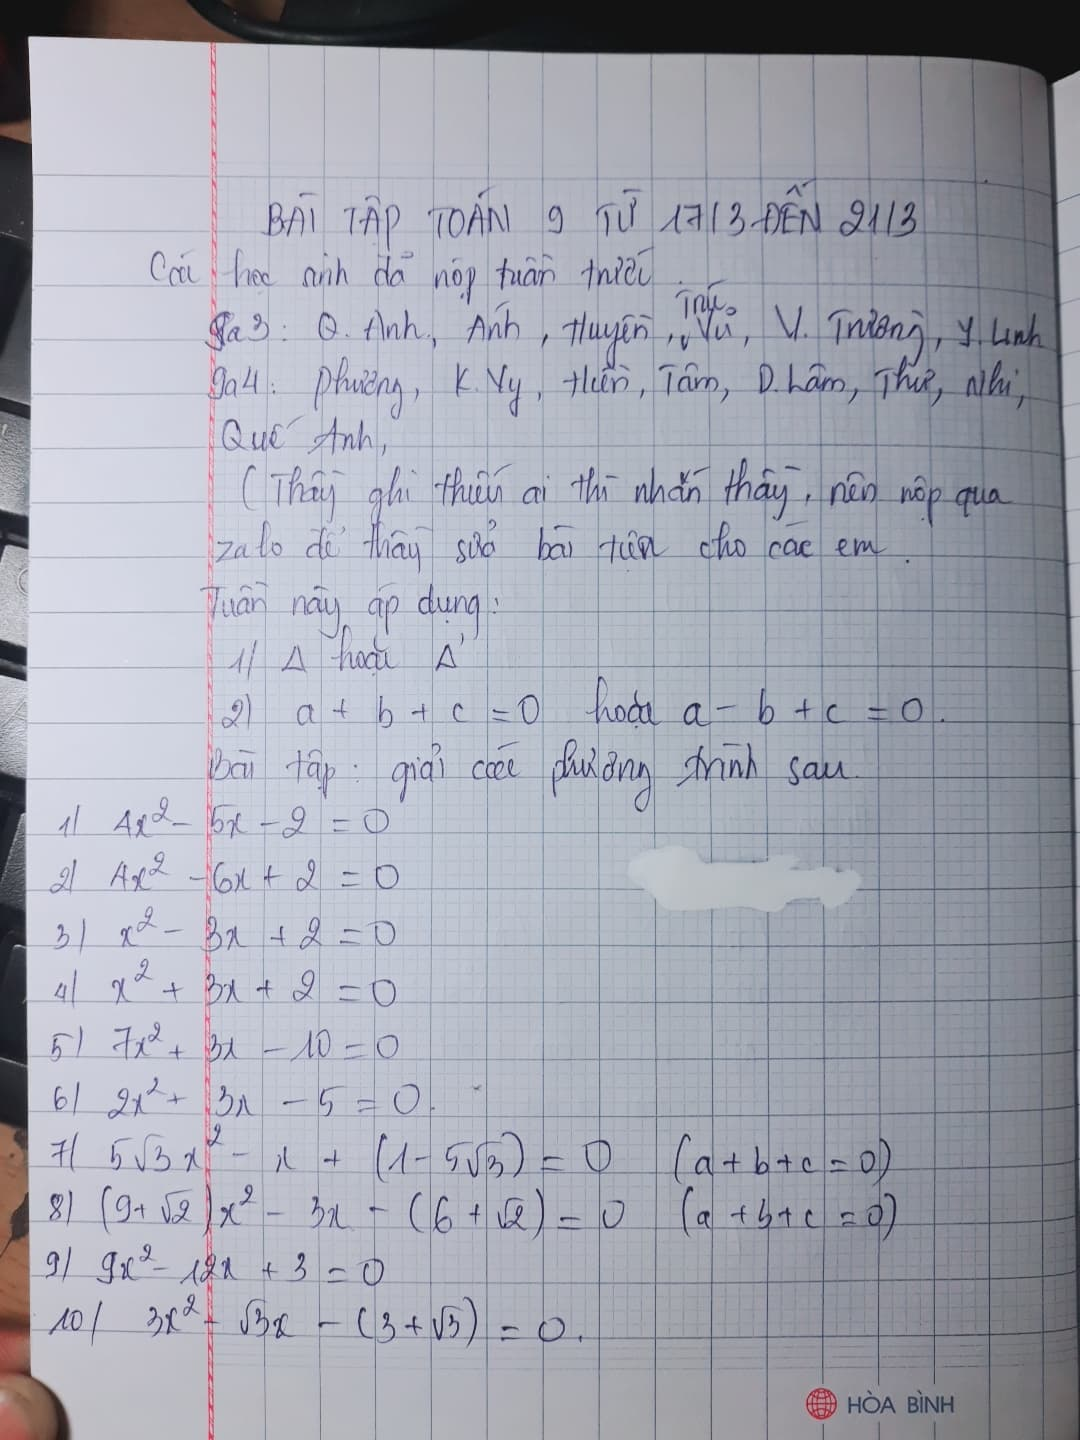 BÀI TẬP TOÁN 9 TỪ 17/3 ĐẾN 21/3
Các học sinh đã nộp tuần trước
9a3: Q. Anh, Ánh, Huyền, Trúc, Vũ, V. Trường, Y. Linh
9a4: Phương, K. Vy, Hiền, Tâm, D. Lâm, Thư, Nhi,
Quế Anh,
(Thầy ghi thiếu ai thì nhắn thầy, nên nộp qua
zalo để thầy sửa bài tiện cho các em.
Tuần này áp dụng:
1/ Δ hoặc Δ'
2) a + b + c = 0 hoặc a - b + c = 0.
Bài tập: giải các phương trình sau.
1/ 4x² - 5x - 2 = 0
2/ 4x² - 6x + 2 = 0
3) x² - 3x + 2 = 0
4/ x² + 3x + 2 = 0
5) 7x² + 3x - 10 = 0
6) 2x² + 3x - 5 = 0.
7/ 5√3x² - x + (1 - 5√3) = 0 (a + b + c = 0)
8) (9 + √2)x² - 3x - (6 + √2) = 0 (a + b + c = 0)
9) 9x² - 12x + 3 = 0
10/ 3x² - √3x - (3 + √3) = 0.
HÒA BÌNH